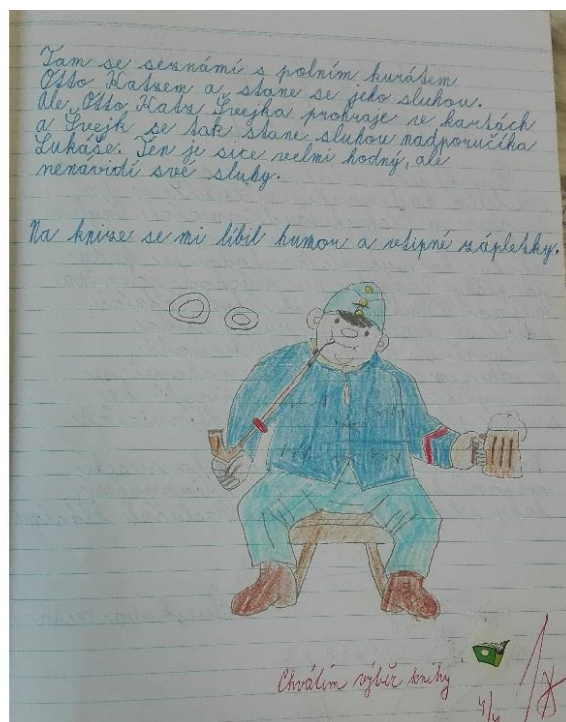 Tam se seznámí s polním kurátem
Otto Katzem a stane se jeho sluhou.
Ale Otto Katz Švejka prohraje ve kartách
a Švejk se tak stane sluhou nadporučíka
Lukáše. Ten je sice velmi hodný, ale
nenávidí své sluhy.
Na knize se mi líbil humor a vtipné zápletky.
Chválím výběr knihy
4/4